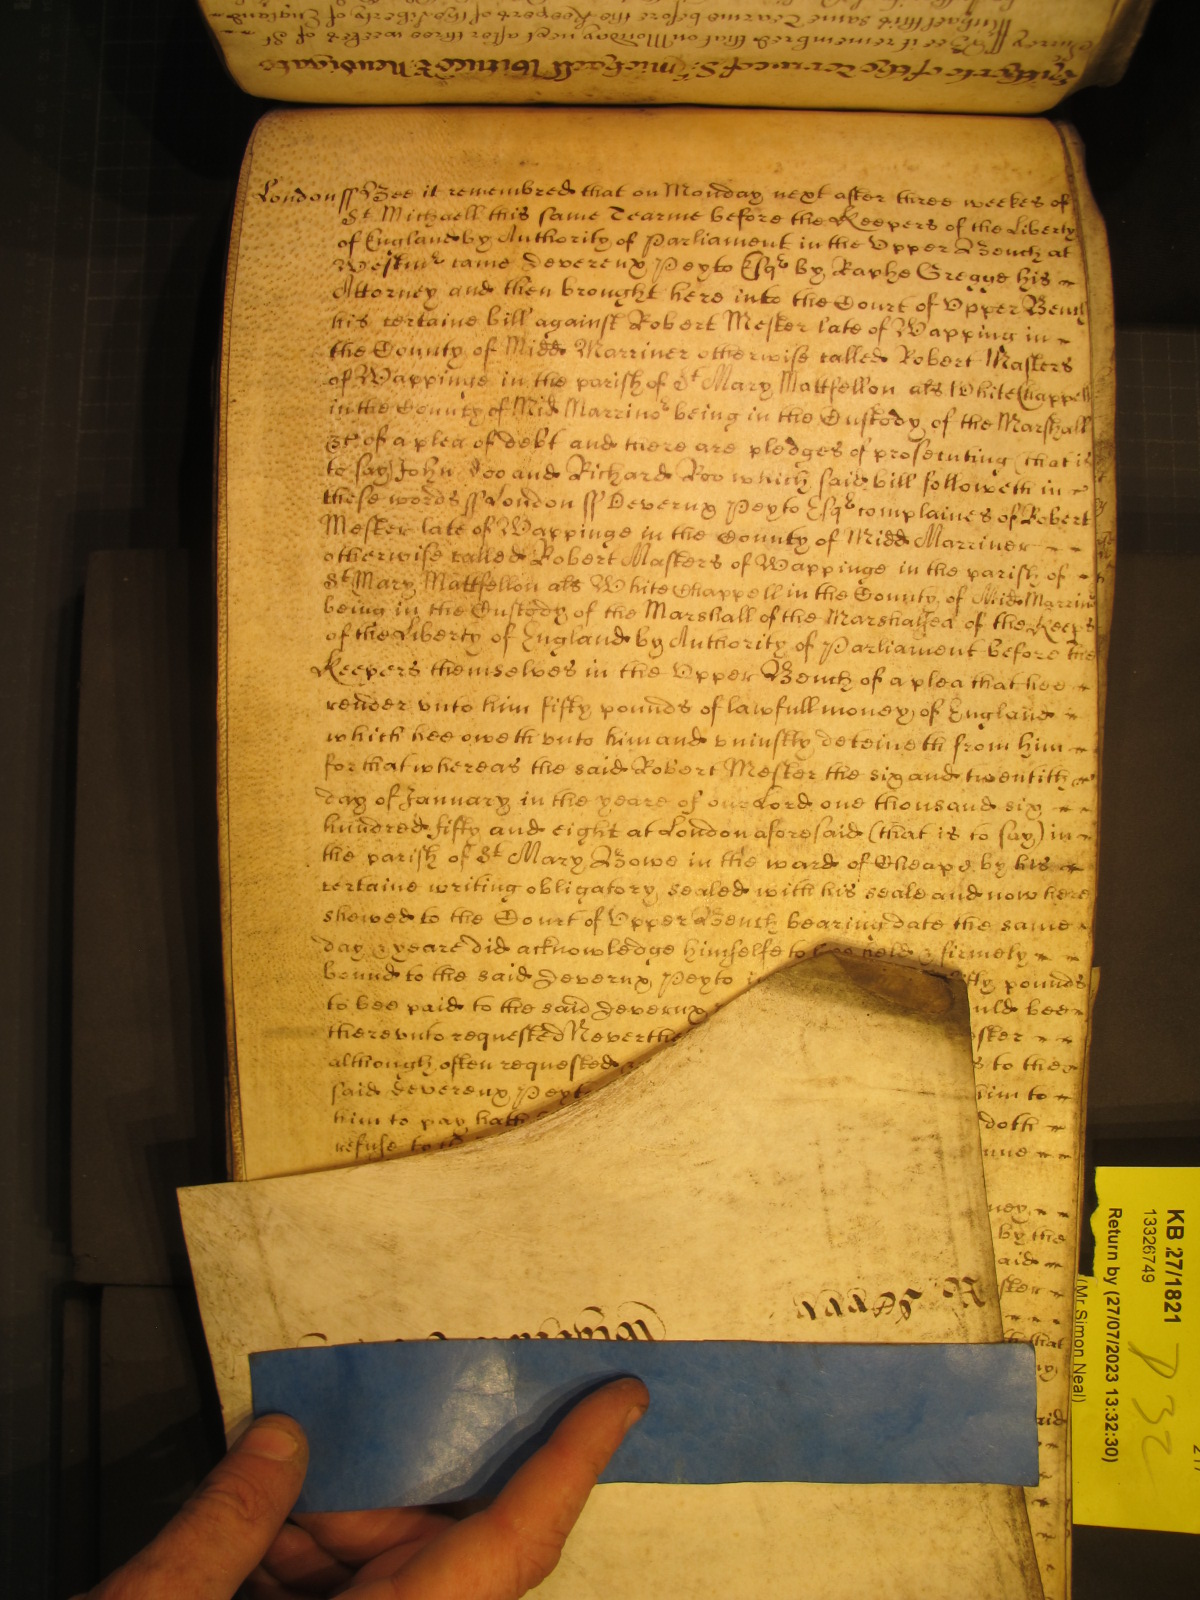 London ss Bee it remembred that on Monday next after three weekes of
St Michaell this same Tearme before the Keepers of the Liberty
of England by Authority of Parliament in the Upper Bench at
Westmr came Devereux Peyto Esqr by Raphe Gregge his
Attorney and then brought here into the Court of Upper Bench
his certaine bill against Robert Mesker late of Wapping in
the County of Midd Marriner otherwise called Robert Maskers
of Wappinge in the parish of St Mary Mattfellon als White Chappell
in the County of Mid Marrinor being in the Custody of the Marshall
&c of a plea of debt and there are pledges of prosecuting (that is
to say) John Doo and Richard Roo which said bill followeth in
these words ss London ss Deverux Peyto Esqr complaines of Robert
Mesker late of Wappinge in the County of Midd Marriner
otherwise called Robert Maskers of Wappinge in the parish of
St Mary Mattfellon als White Chappell in the County of Mid Marrinr
being in the Custody of the Marshall of the Marshalsea of the Keeps
of the Liberty of England by Authority of Parliament before the
Keepers themselves in the Upper Bench of a plea that hee
render unto him fifty pounds of lawfull money of England
which hee oweth unto him and uniustly deteineth from him
for that whereas the said Robert Mesker the six and twentith
day of January in the yeare of our Lord one thousand six
hundred fifty and eight at London aforesaid (that is to say) in
the parish of St Mary Bowe in the ward of Cheape by his
certaine writing obligatory sealed with his seale and now here
shewed to the Court of Upper Bench bearing date the same
day & yeare did acknowledge himselfe to bee held & firmely
bound to the said Deverux Peyto fifty pounds
to bee paid to the said Deverux should bee
thereunto requested Neverthe esker
although often requested s to the
said Devereux Peyto him to
him to pay hath doth
refuse to
ney
by the
aid
esker
that
KB 27/1821
13326749
Return by (27/07/2023 13:32:30)
(Mr Simon Neal)
P 32